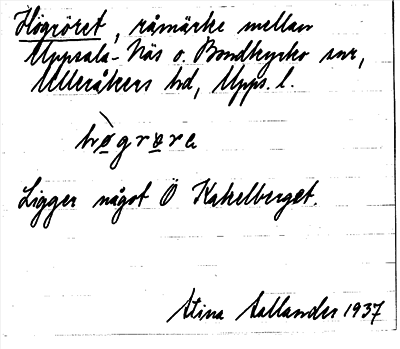 Högröret, råmärke mellan
Uppsala-Näs o. Bondkyrko snr,
Ulleråkers hd, Upps. l.
hø̀grøre
Ligger något Ö Kakelberget.
Stina Sallander 1937